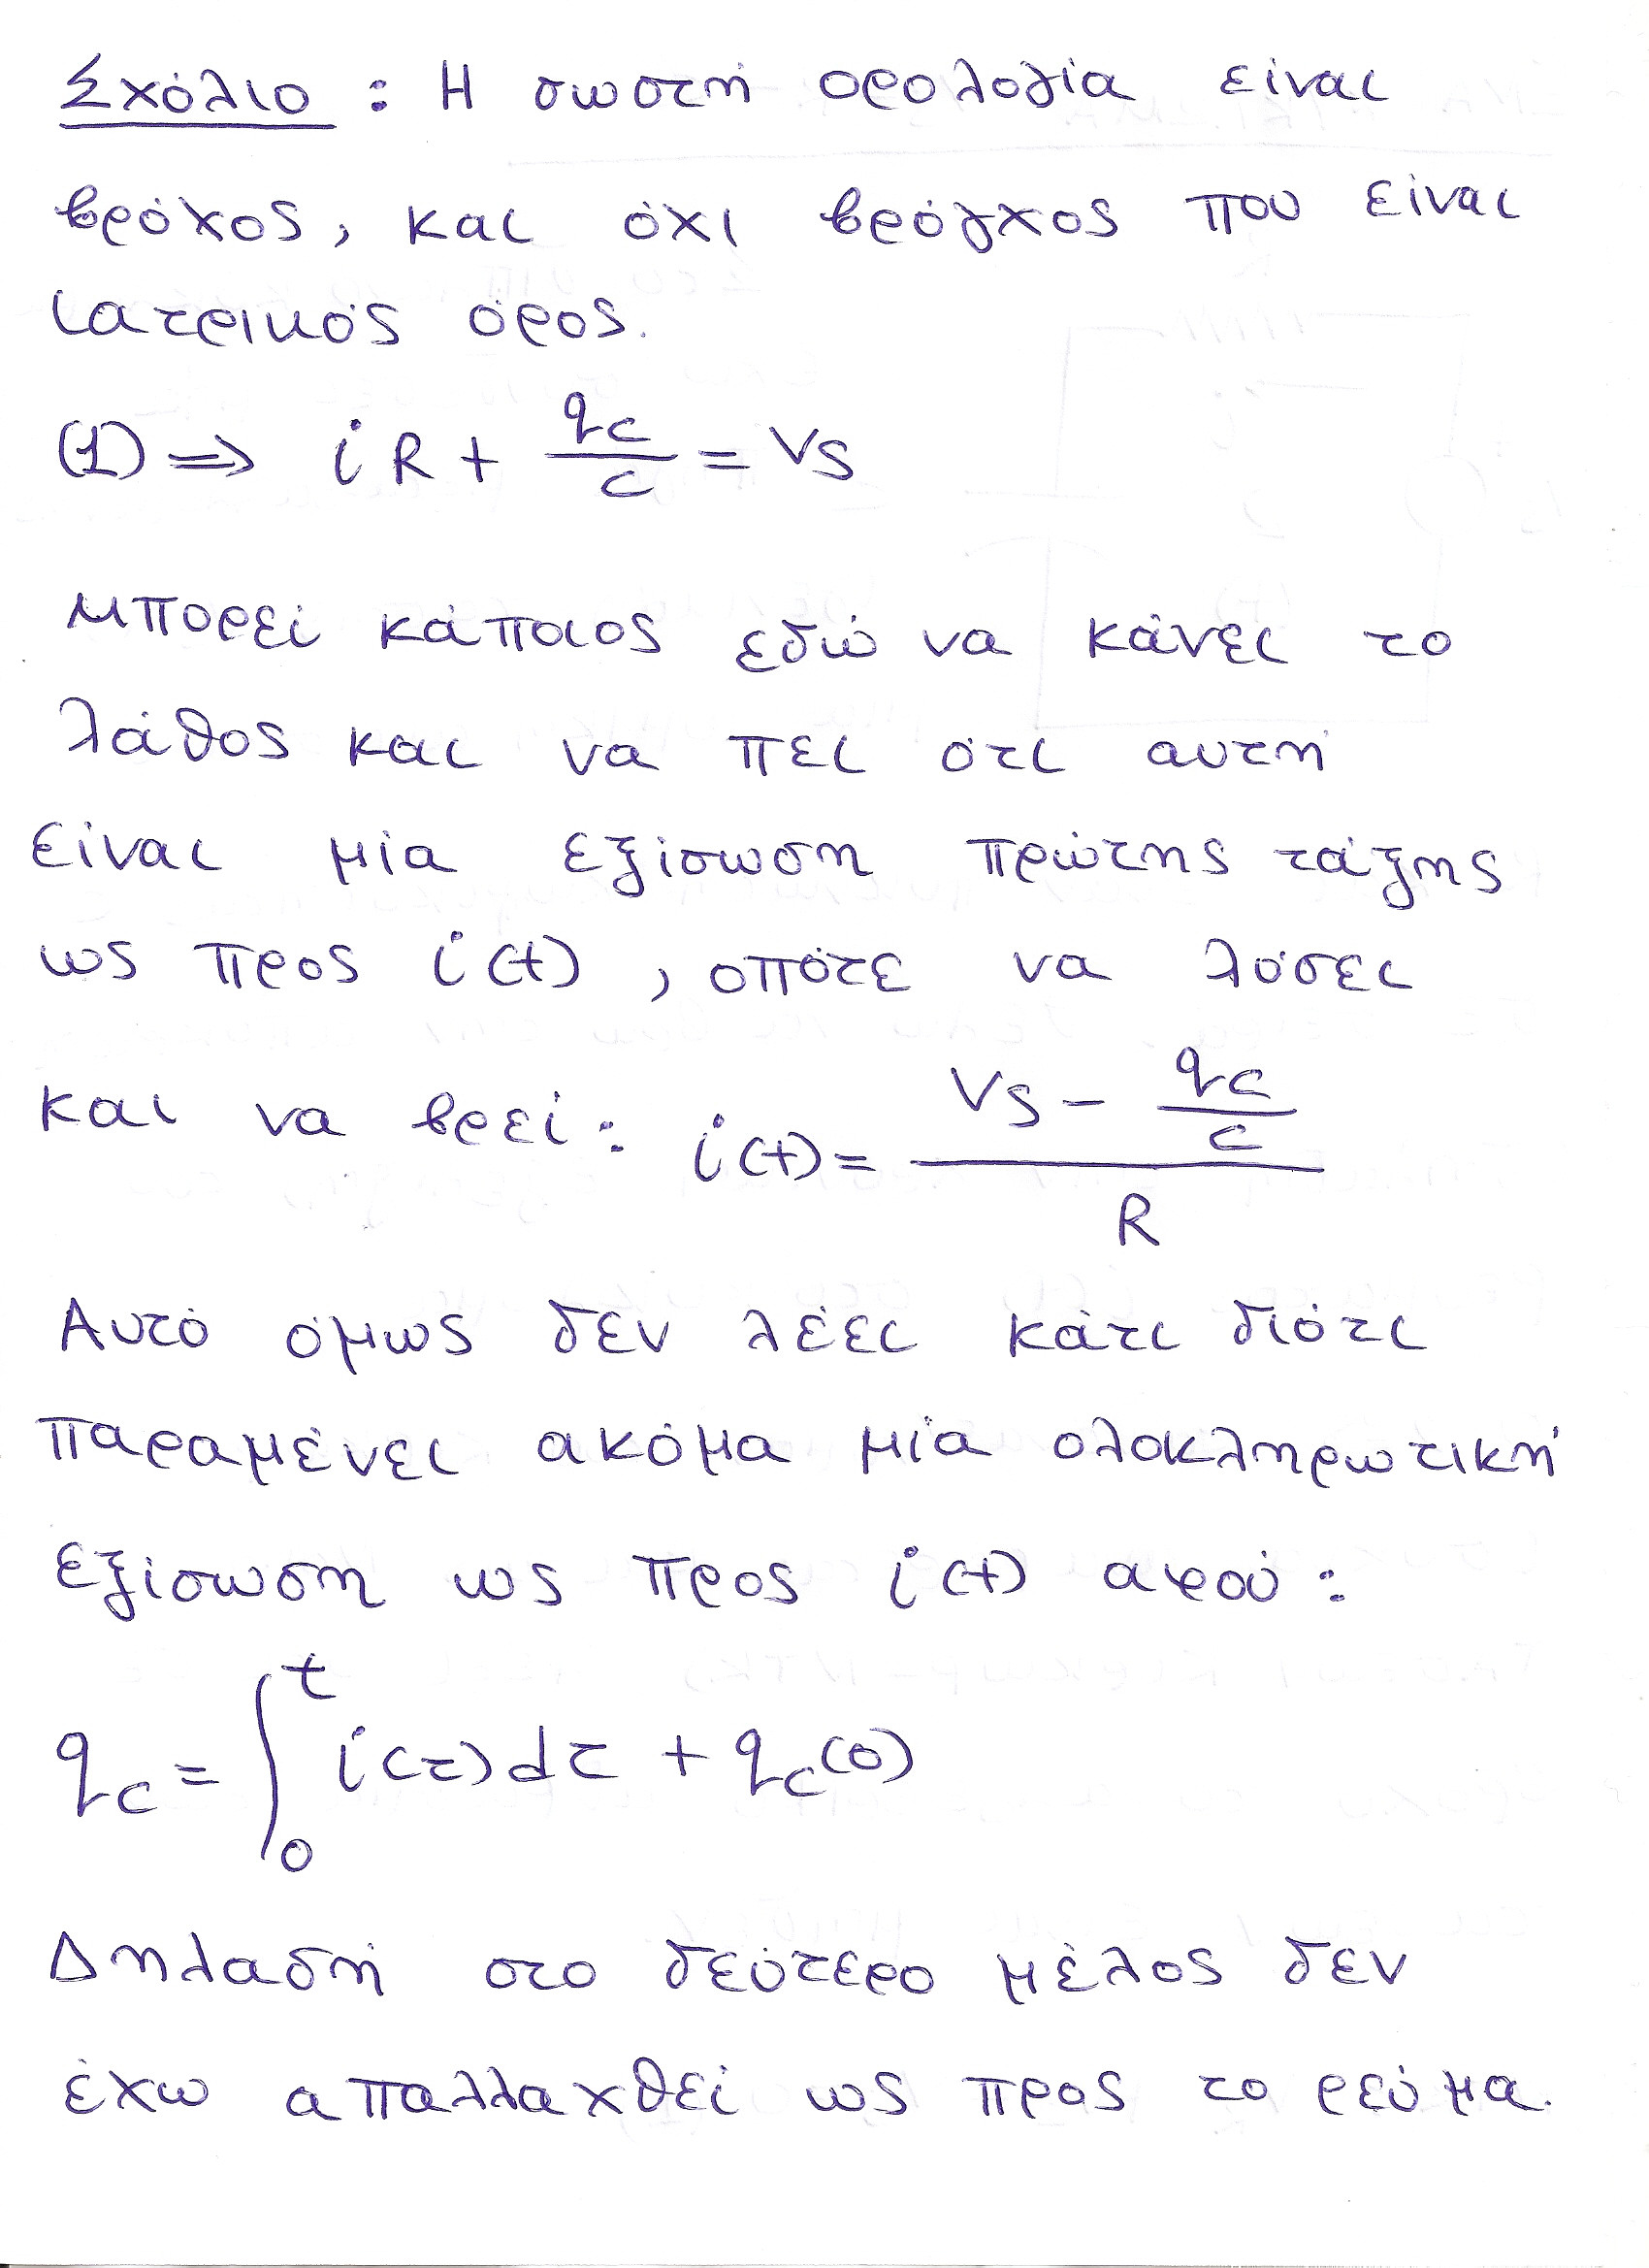 Σχόλιο : Η σωστή ορολογία είναι
βρόχος, και όχι βρόγχος που είναι
ιατρικός όρος.
(1) ⇒ i R + qc/c = Vs
Μπορεί κάποιος εδώ να κάνει το
λάθος και να πει ότι αυτή
είναι μία εξίσωση πρώτης τάξης
ως προς i(t), οπότε να λύσει
και να βρει : i(t) = (Vs - qc/c) / R
Αυτό όμως δεν λέει κάτι διότι
παραμένει ακόμα μία ολοκληρωτική
εξίσωση ως προς i(t) αφού :
qc = ∫₀ᵗ i(τ)dτ + qc(0)
Δηλαδή στο δεύτερο μέλος δεν
έχω απαλλαχθεί ως προς το ρεύμα.